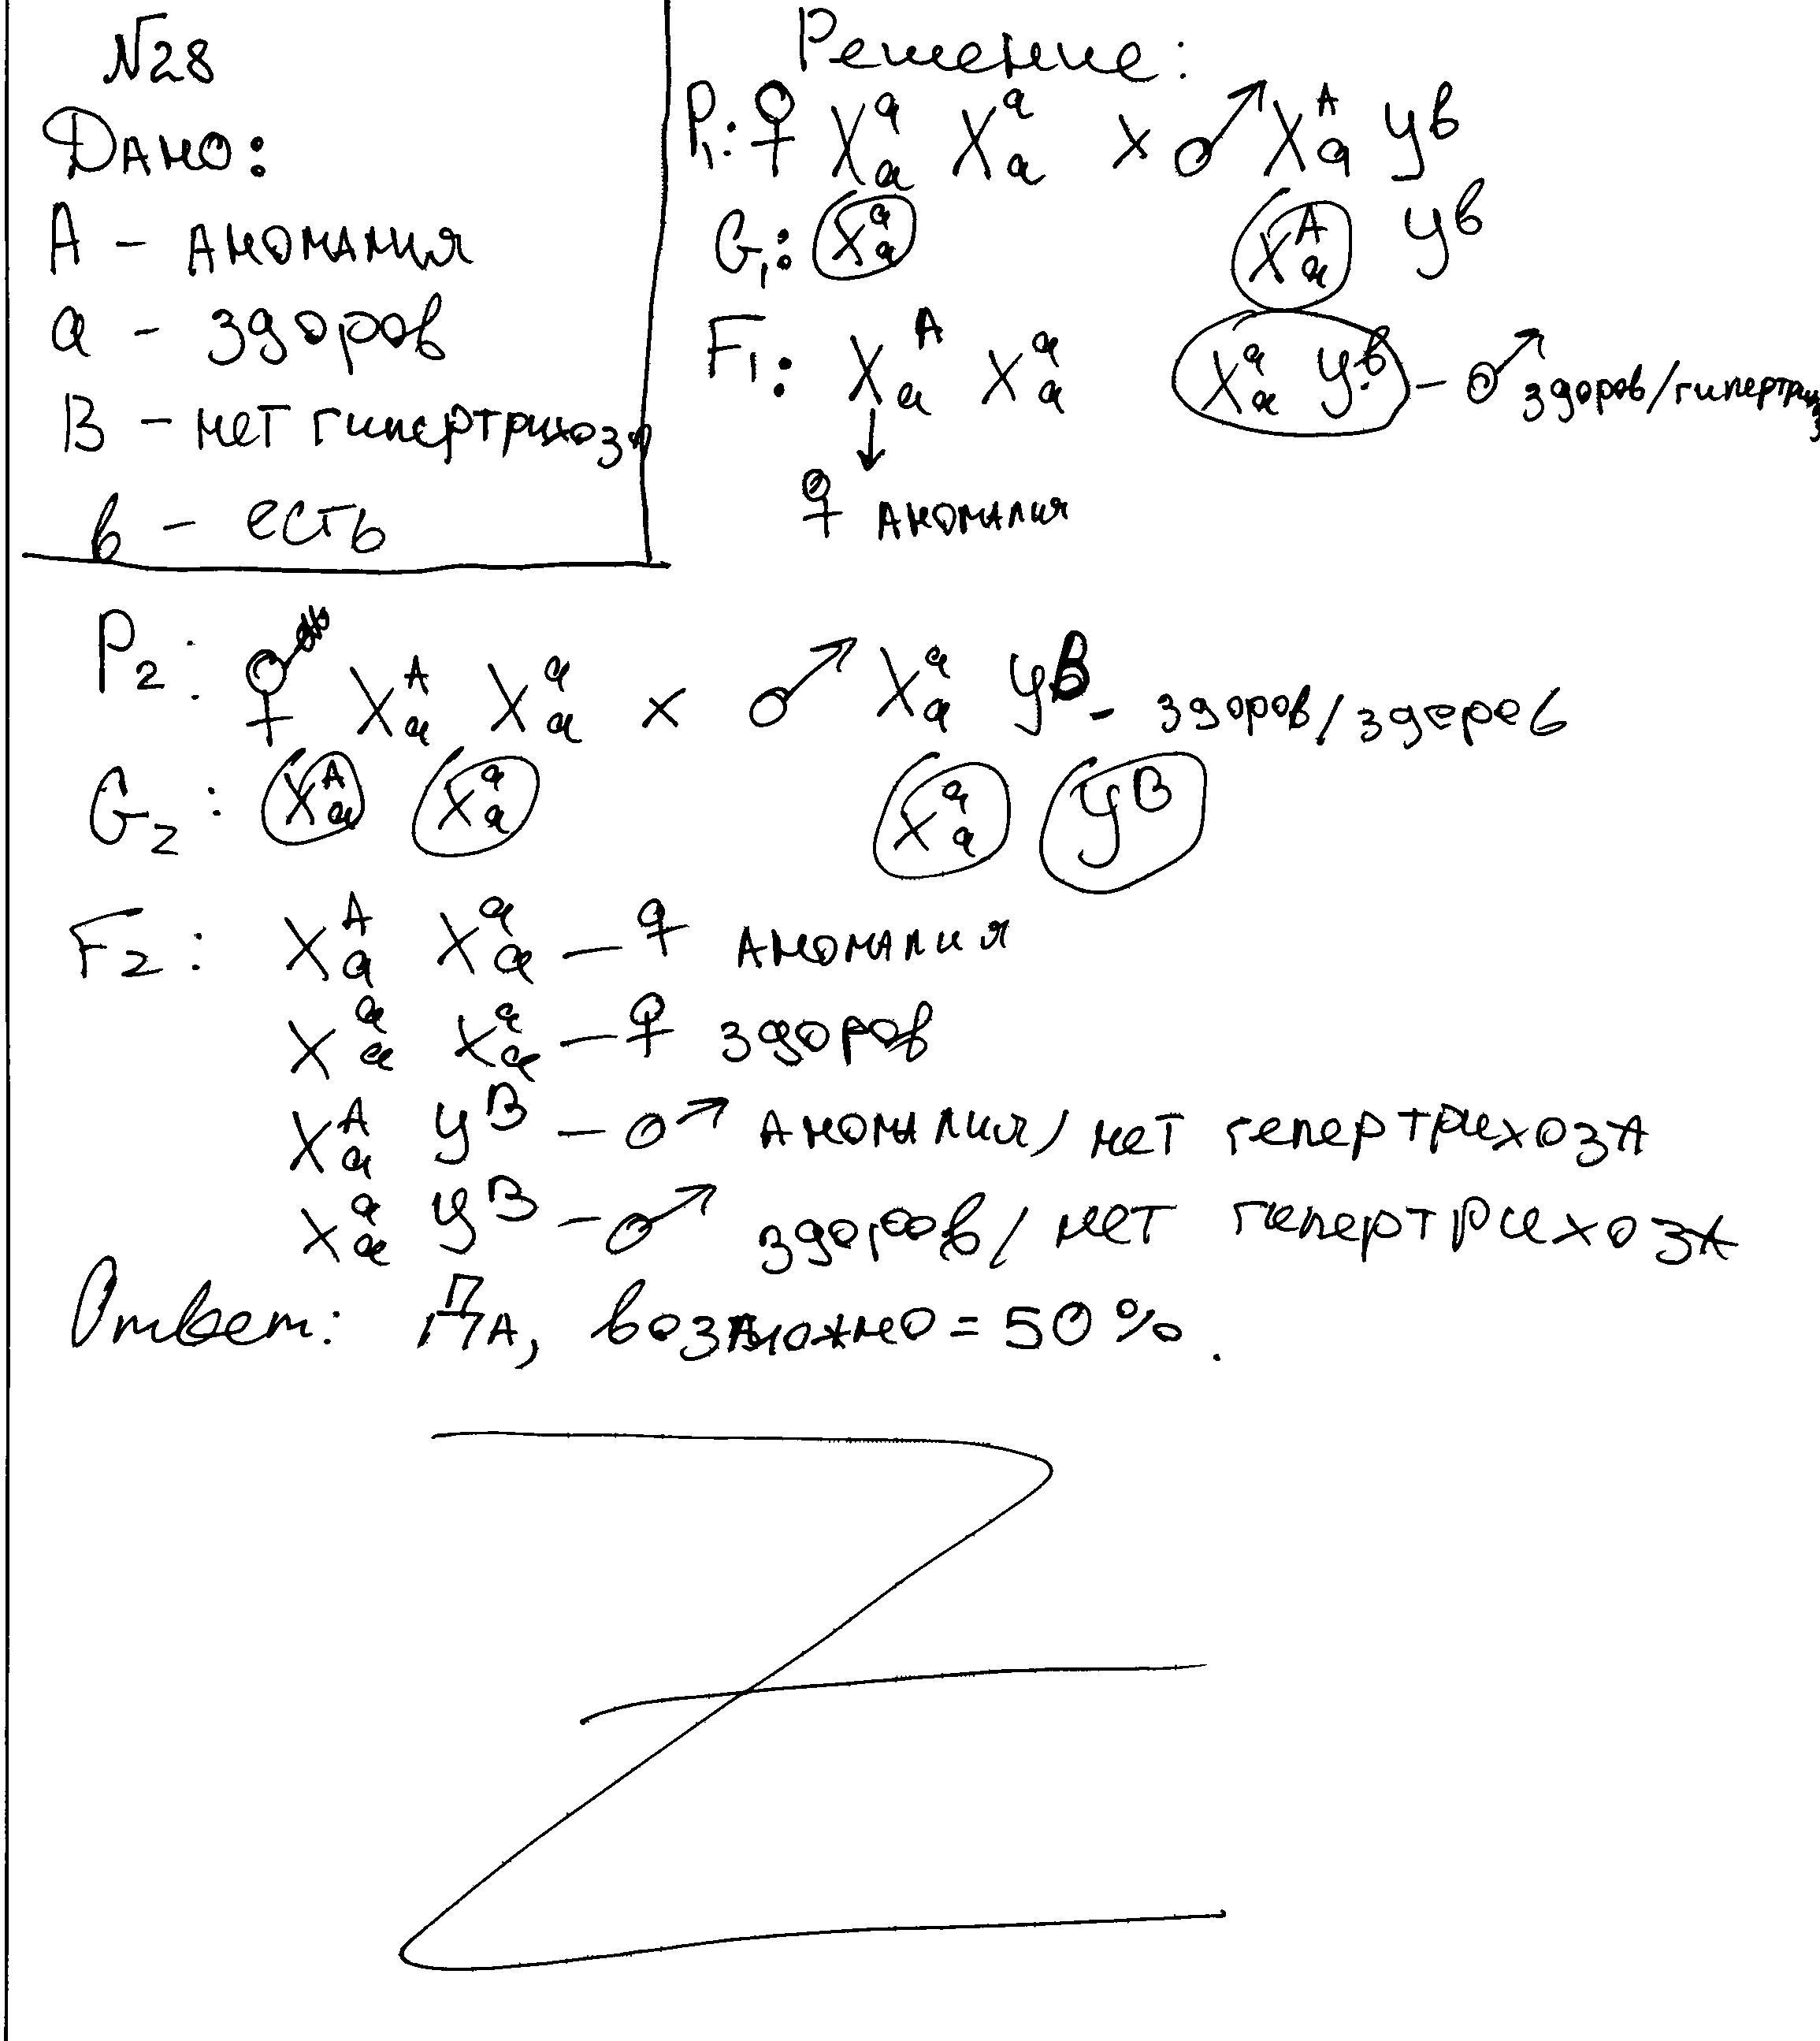 №28
Дано:
А - аномалия
а - здоров
В - нет гипертрихоза
в - есть
Решение:
P₁: ♀ Xᵃₐ Xᵃₐ × ♂ Xᴬₐ Yᵇ
G₁: Xᵃₐ Xᴬₐ Yᵇ
F₁: Xᴬₐ Xᵃₐ Xᵃₐ Yᵇ - ♂ здоров/гипертрихоз
♀ аномалия
P₂: ♀ Xᴬₐ Xᵃₐ × ♂ Xᵃₐ Yᴮ - здоров/здоров
G₂: Xᴬₐ Xᵃₐ Xᵃₐ Yᴮ
F₂: Xᴬₐ Xᵃₐ - ♀ аномалия
Xᵃₐ Xᵃₐ - ♀ здоров
Xᴬₐ Yᴮ - ♂ аномалия/нет гепертрихоза
Xᵃₐ Yᴮ - ♂ здоров/нет гипертрихоза
Ответ: Да, возможно = 50%.